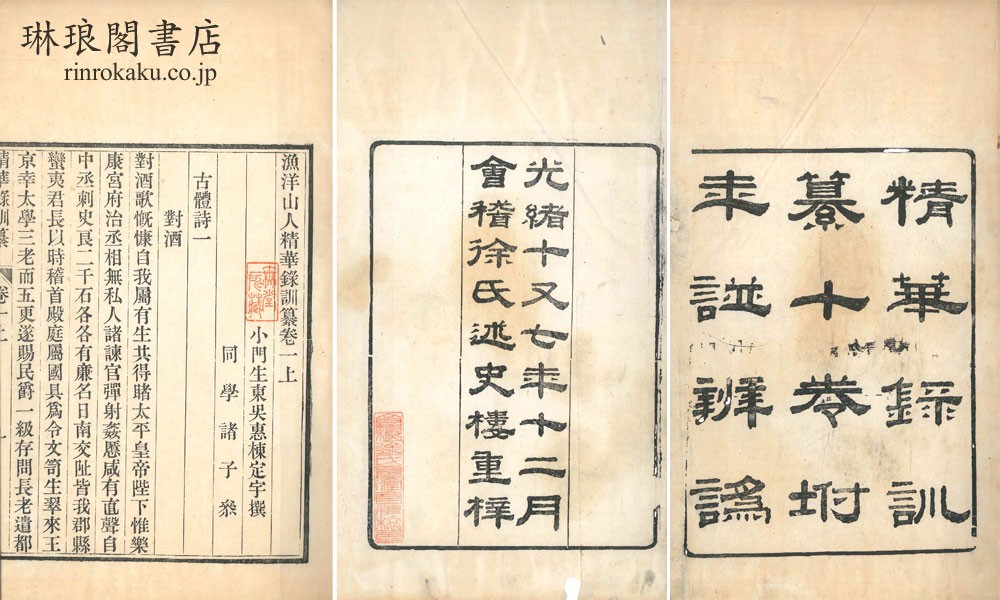 琳琅閣書店
rinrokaku.co.jp
精華錄訓
纂十卷坿
年譜辨譌
光緒十又七年十二月
會稽徐氏述史樓重梓
漁洋山人精華錄訓纂卷一上
小門生東吳惠棟定宇撰
同學諸子叅
古體詩一
對酒
對酒歌慨慷自我屬有生共得賭太平皇帝陛下惟樂
康宮府治丞相無私人諸諫官彈射姦慝咸有直聲自
中丞刺史良二千石各各有廉名日南交阯皆我郡縣
蠻夷君長以時稽首殿庭屬國具爲令文笥生翠來王
京幸太學三老而五更遂賜民爵一級存問長老遣都
精華錄訓纂 卷一上 一